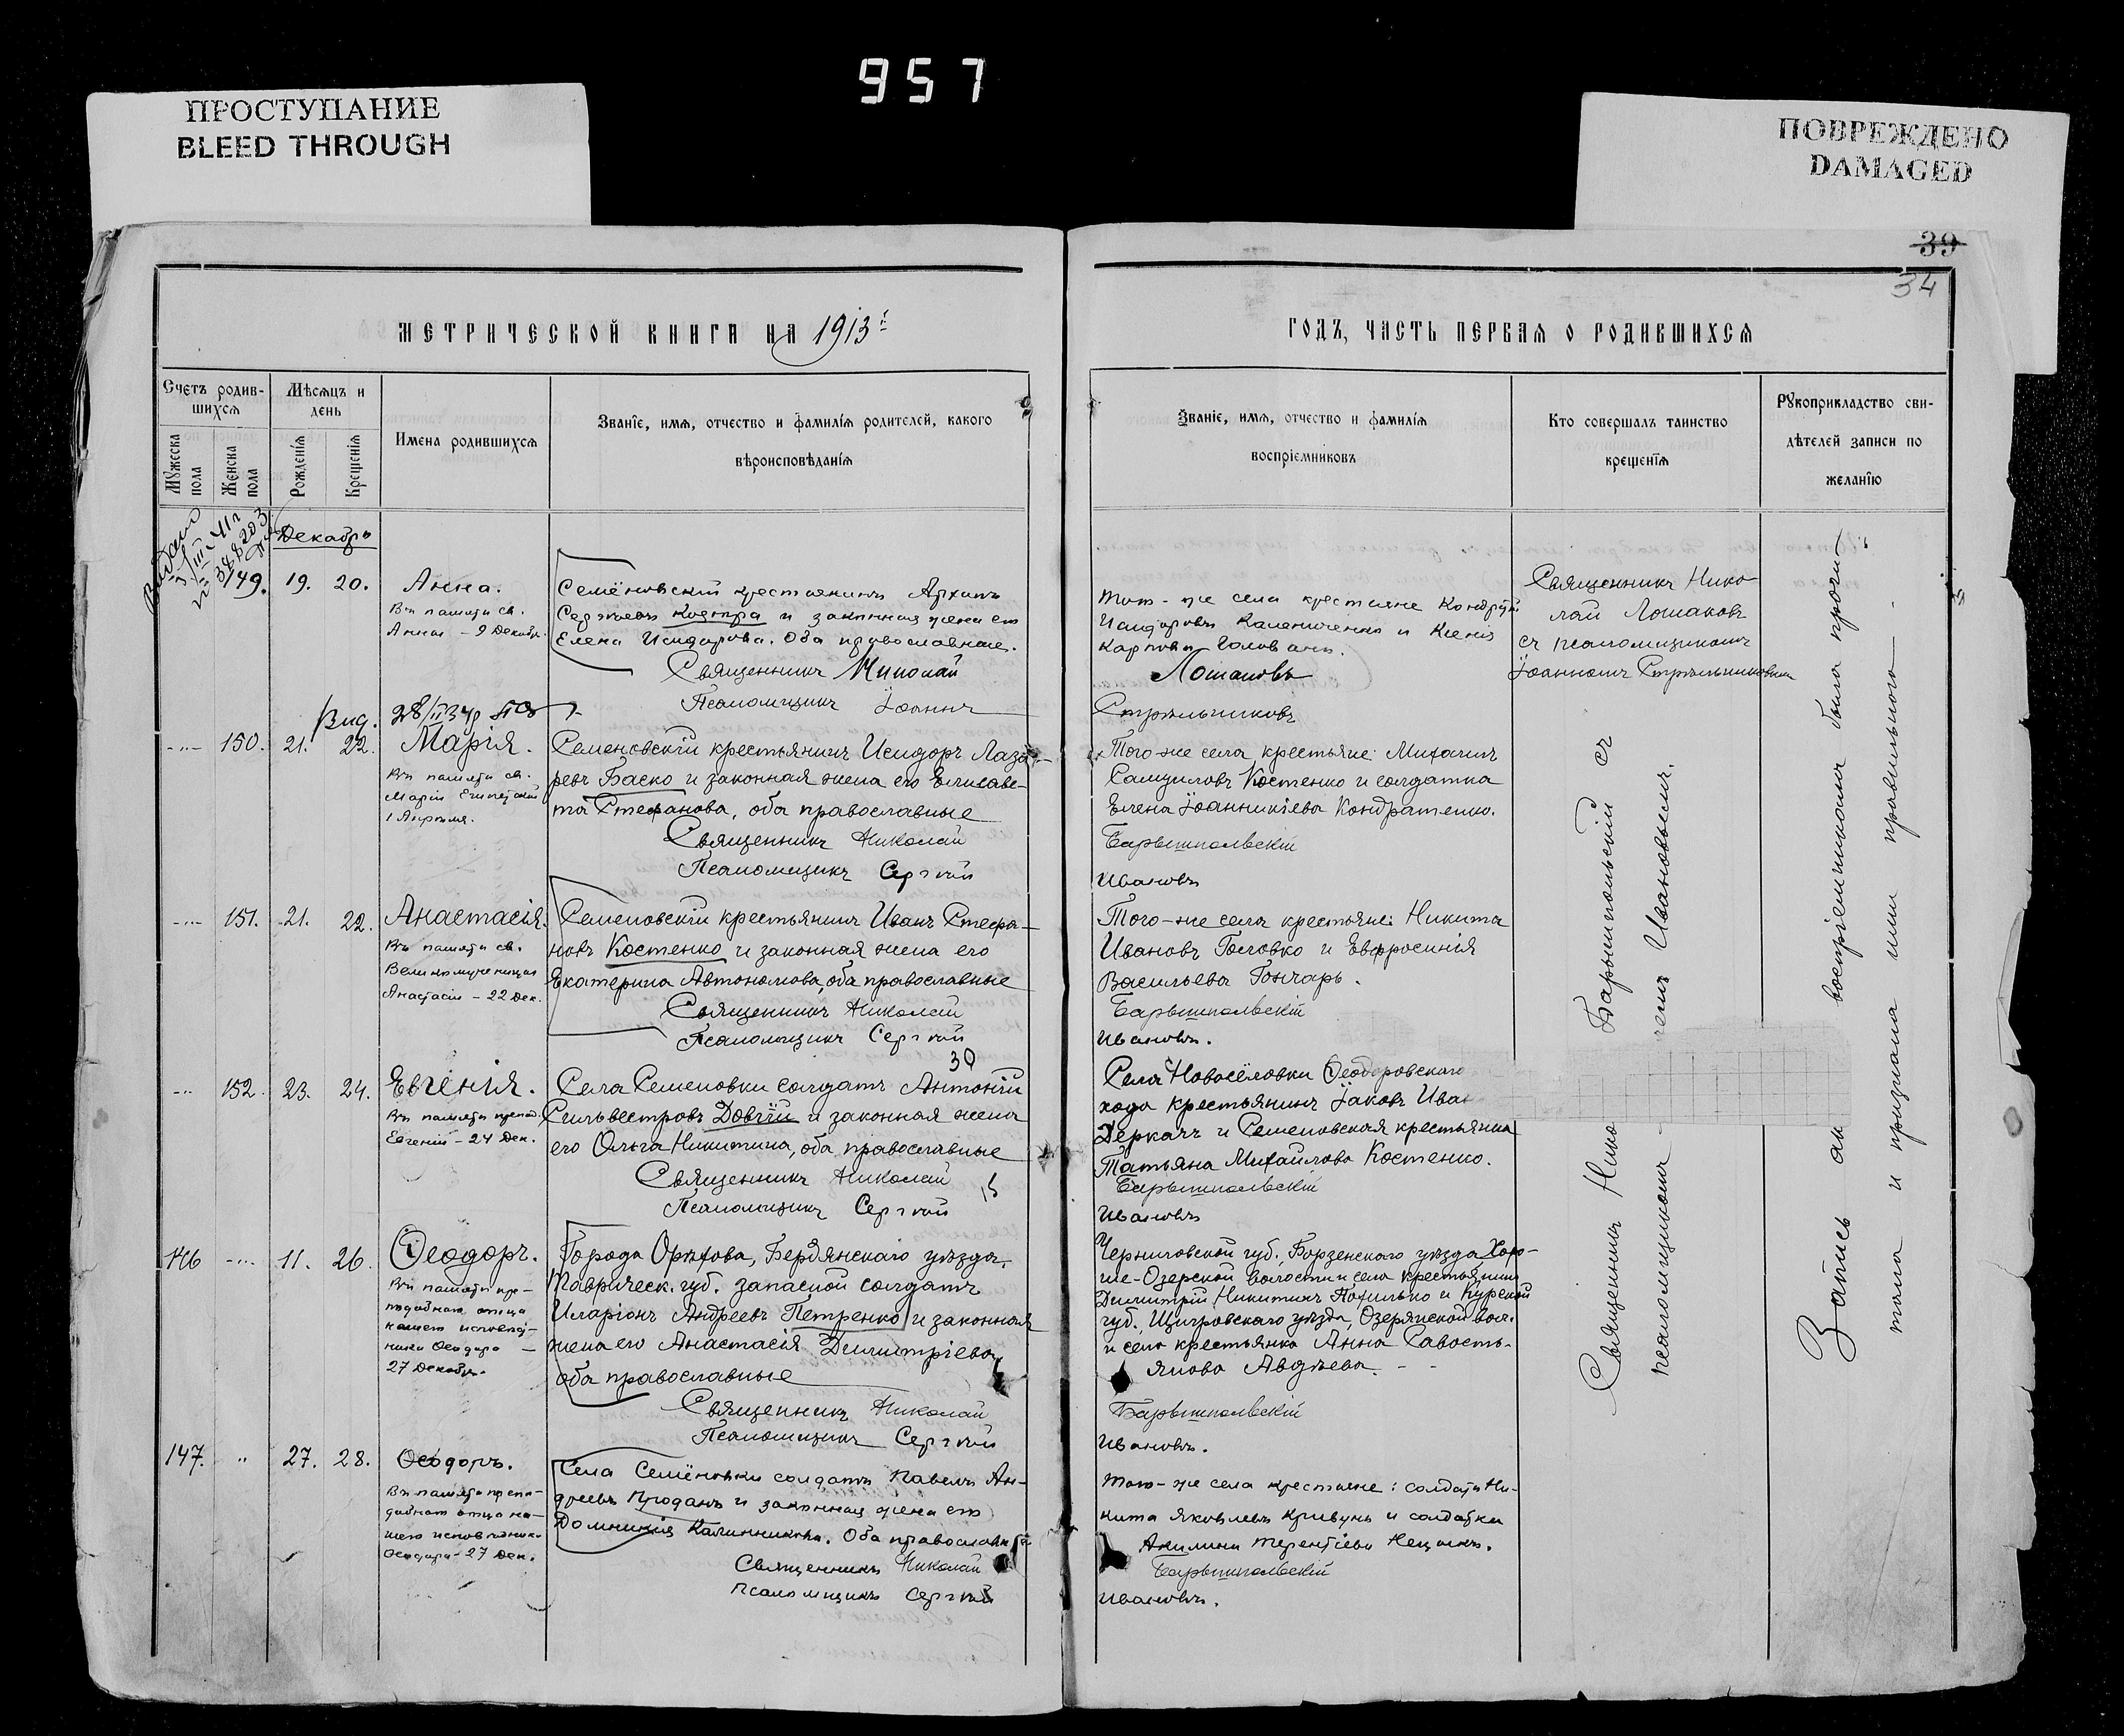 957
ПРОСТУПАНИЕ
BLEED THROUGH
ПОВРЕЖДЕНО
DAMAGED
39
34
МЕТРИЧЕСКОЙ КНИГИ НА 1913й
ГОДЪ, ЧАСТЬ ПЕРВАЯ О РОДИВШИХСЯ
Счетъ родив-
шихся
Мужеска
пола
Женска
пола
Мѣсяцъ и
день
Рожденія
Крещенія
Имена родившихся
Званіе, имя, отчество и фамилія родителей, какого
вѣроисповѣданія
Званіе, имя, отчество и фамилія
воспріемниковъ
Кто совершалъ таинство
крещенія
Рукоприкладство сви-
дѣтелей записи по
желанію
Декабрь
149. 19. 20.
Анна.
Въ память св.
Анны - 9 Декабр.
Семёновскій крестьянинъ Архипъ
Сергѣевъ Костра и законная жена его
Елена Исидорова. Оба православные.
Священникъ Николай
Псаломщикъ Іоаннъ
Того-же села крестьяне Кондратъ
Исидоровъ Калениченко и Ксенія
Карпова Головань.
Лошаковъ
Стрѣльниковъ
Священникъ Нико
лай Лошаковъ
съ псаломщикомъ
Іоанномъ Стрѣльниковымъ
Выд. 28/II 34р
150. 21. 22.
Марія.
Въ память св.
Маріи Египетской
1 Апрѣля.
Семеновскій крестьянинъ Исидоръ Лаза-
ревъ Баско и законная жена его Елисаве-
та Стефанова, оба православные
Священникъ Николай
Псаломщикъ Сергѣй
Того-же села крестьяне: Михаилъ
Самуиловъ Костенко и солдатка
Елена Іоанникіева Кондратенко.
Барышпольскій
Ивановъ
151. 21. 22.
Анастасія.
Въ память св.
Великомученицы
Анастасіи - 22 Дек.
Семеновскій крестьянинъ Иванъ Стефа-
новъ Костенко и законная жена его
Екатерина Автономова, оба православные
Священникъ Николай
Псаломщикъ Сергѣй
Того-же села крестьяне: Никита
Ивановъ Головко и Евфросинія
Васильева Гончарь.
Барышпольскій
Ивановъ.
30
152. 23. 24.
Евгенія.
Въ память препод.
Евгеніи - 24 Дек.
Села Семеновки солдатъ Антоній
Сильвестровъ Довгій и законная жена
его Ольга Никитина, оба православные
Священникъ Николай
Псаломщикъ Сергѣй
Села Новосёловки Ѳеодоровскаго
хода крестьянинъ Іаковъ Иван
Деркачъ и Семеновская крестьянка
Татьяна Михайлова Костенко.
Барышпольскій
Ивановъ
146 11. 26.
Ѳеодоръ.
Въ память пре-
подобнаго отца
нашего исповѣд-
ника Ѳеодора -
27 Декабря.
Города Орѣхова, Бердянскаго уѣзда,
Таврическ. губ. запасной солдатъ
Иларіонъ Андреевъ Петренко и законная
жена его Анастасія Димитріева,
оба православные
Священникъ Николай
Псаломщикъ Сергѣй
Черниговской губ., Борзенскаго уѣзда, Хоро-
ше-Озерской волости и села крестьянинъ
Димитрій Никитинъ Похилько и Курской
губ. Щигровскаго уѣзда, Озерянской вол.
и села крестьянка Анна Савость-
янова Авдѣева.
Барышпольскій
Ивановъ.
147. 27. 28.
Ѳеодоръ.
Въ память препо-
добнаго отца на-
шего исповѣдника
Ѳеодора - 27 Дек.
Села Семёновки солдатъ Павелъ Ан-
дреевъ Проданъ и законная жена его
Домникія Калинникова. Оба православн
Священникъ Николай
Псаломщикъ Сергѣй
Того-же села крестьяне: солдатъ Ни-
кита Яковлевъ Кривунь и солдатка
Акилина Терентіева
Барышпольскій
Ивановъ.
Священникъ Нико Барышпольскій съ
псаломщикомъ Ивановымъ.
Запись воспріемникамъ была прочи-
тана и признана ими правильною.